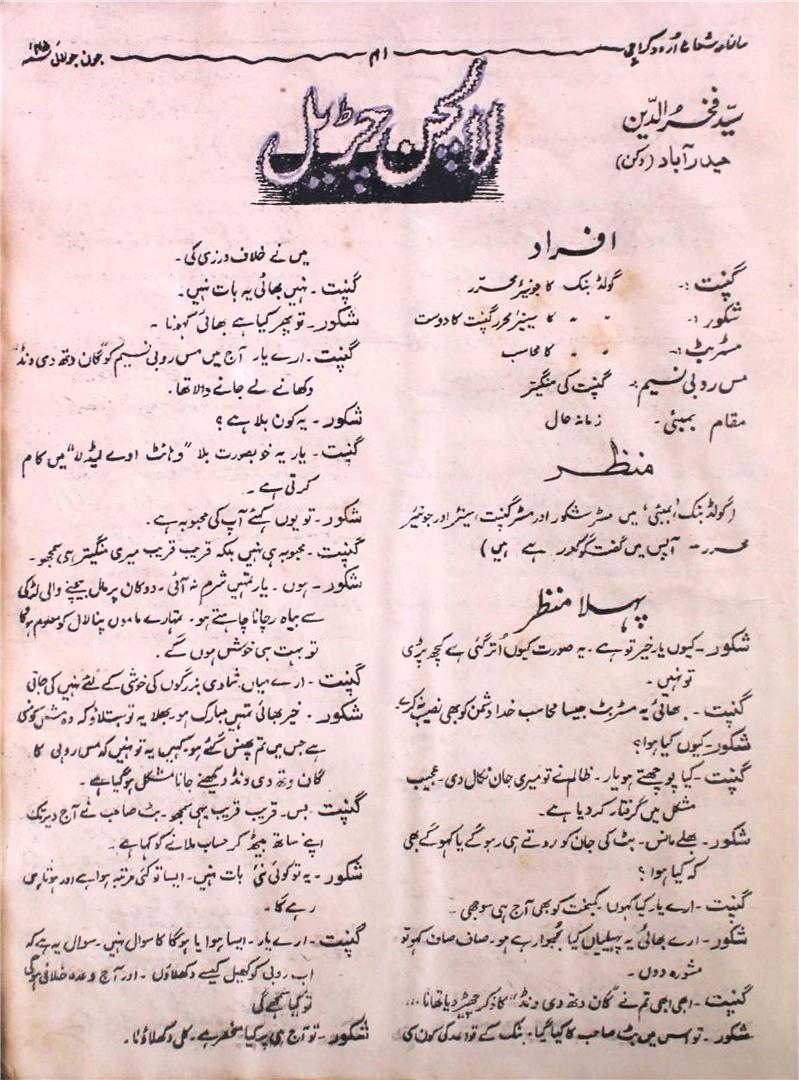 سالنامہ شعاع اُردو کراچی
۱۸۱
جون جولائی ۴۵ء
لا لچن چڑیل
سیّد فخرالدّین
حیدرآباد (دکن)
افراد
گنپت :۔ گولڈ بنک کا جونیئر محرّر
شکور :۔ 〃 〃 کا سینیئر محرر گنپت کا دوست
مسٹر بٹ :۔ 〃 〃 کا محاسب
مس روبی نسیم :۔ گنپت کی منگیتر
مقام بمبئی ۔ زمانہ حال
منظر
(گولڈ بنک 'بمبئی' میں مسٹر شکور اور مسٹر گنپت سینئر اور جونیئر
محرر ۔ آپس میں گفتگو کر رہے ہیں)
پہلا منظر
شکور ۔ کیوں یار خیر تو ہے ۔ یہ صورت کیوں اُتر گئی ہے کچھ پڑی
تو نہیں ۔
گنپت ۔ بھائی یہ مسٹر بٹ جیسا محاسب خدا دشمن کو بھی نصیب نہ کرے
شکور ۔ کیوں کیا ہوا؟
گنپت ۔ کیا پوچھتے ہو یار ۔ ظالم نے تو میری جان نکال دی ۔ عجیب
مشکل میں گرفتار کر دیا ہے ۔
شکور ۔ بھلے مانس ۔ بٹ کی جان کو روتے ہی رہو گے یا کہو گے بھی
کہ کیا ہوا ؟
گنپت ۔ ارے یار کیا کہوں ۔ کمبخت کو بھی آج ہی سوجھی ۔
شکور ۔ ارے بھائی یہ پہیلیاں کیا بجھوا رہے ہو ۔ صاف صاف کہو تو
مشورہ دوں ۔
گنپت ۔ ابھی ابھی تم نے "گان وتھ دی ونڈ" کا ذکر چھیڑ دیا تھا نا ...
شکور ۔ تو اس میں بٹ صاحب کا کیا گیا ۔ بنک کے قواعد کی کون سی
میں نے خلاف ورزی کی ۔
گنپت ۔ نہیں بھائی یہ بات نہیں ۔
شکور ۔ تو پھر کیا ہے بھائی کہو نا ۔
گنپت ۔ ارے یار آج میں مس روبی نسیم کو "گان وتھ دی ونڈ"
دکھانے لے جانے والا تھا ۔
شکور ۔ یہ کون بلا ہے ؟
گنپت ۔ یار یہ خوبصورت بلا "وہائٹ اوے لیڈلا" میں کام
کرتی ہے ۔
شکور ۔ تو یوں کہئے آپ کی محبوبہ ہے ۔
گنپت ۔ محبوبہ ہی نہیں بلکہ قریب قریب میری منگیتر ہی سمجھو ۔
شکور ۔ ہوں ۔ یار تمہیں شرم نہ آئی ۔ دوکان پر مال بیچنے والی لڑکی
سے بیاہ رچانا چاہتے ہو ۔ تمہارے ماموں پنالال کو معلوم ہو گا
تو بہت ہی خوش ہوں گے ۔
گنپت ۔ ارے میاں شادی بزرگوں کی خوشی کے لئے نہیں کی جاتی
شکور ۔ خیر بھائی تمہیں مبارک ہو ۔ بھلا یہ تو بتلاؤ کہ وہ مشکل کونسی
ہے جس میں تم پھنس گئے ہو ۔ کہیں یہ تو نہیں کہ مس روبی کا
گان وتھ دی ونڈ دیکھنے جانا مشکل ہو گیا ہے ۔
گنپت ۔ بس ۔ قریب قریب یہی سمجھو ۔ بٹ صاحب نے آج دیر تک
اپنے ساتھ بیٹھ کر حساب ملانے کو کہا ہے ۔
شکور ۔ یہ تو کوئی نئی بات نہیں ۔ ایسا تو کئی مرتبہ ہوا ہے اور ہوتا ہی
رہے گا ۔
گنپت ۔ ارے یار ۔ ایسا ہوا یا ہو گا کا سوال نہیں ۔ سوال یہ ہے کہ
اب روبی کو کھیل کیسے دکھلاؤں ۔ اور آج وعدہ خلافی ہو گی
تو کیا سمجھے گی
شکور ۔ تو آج ہی پر کیا منحصر ہے ۔ کل دکھلاؤ نا ۔